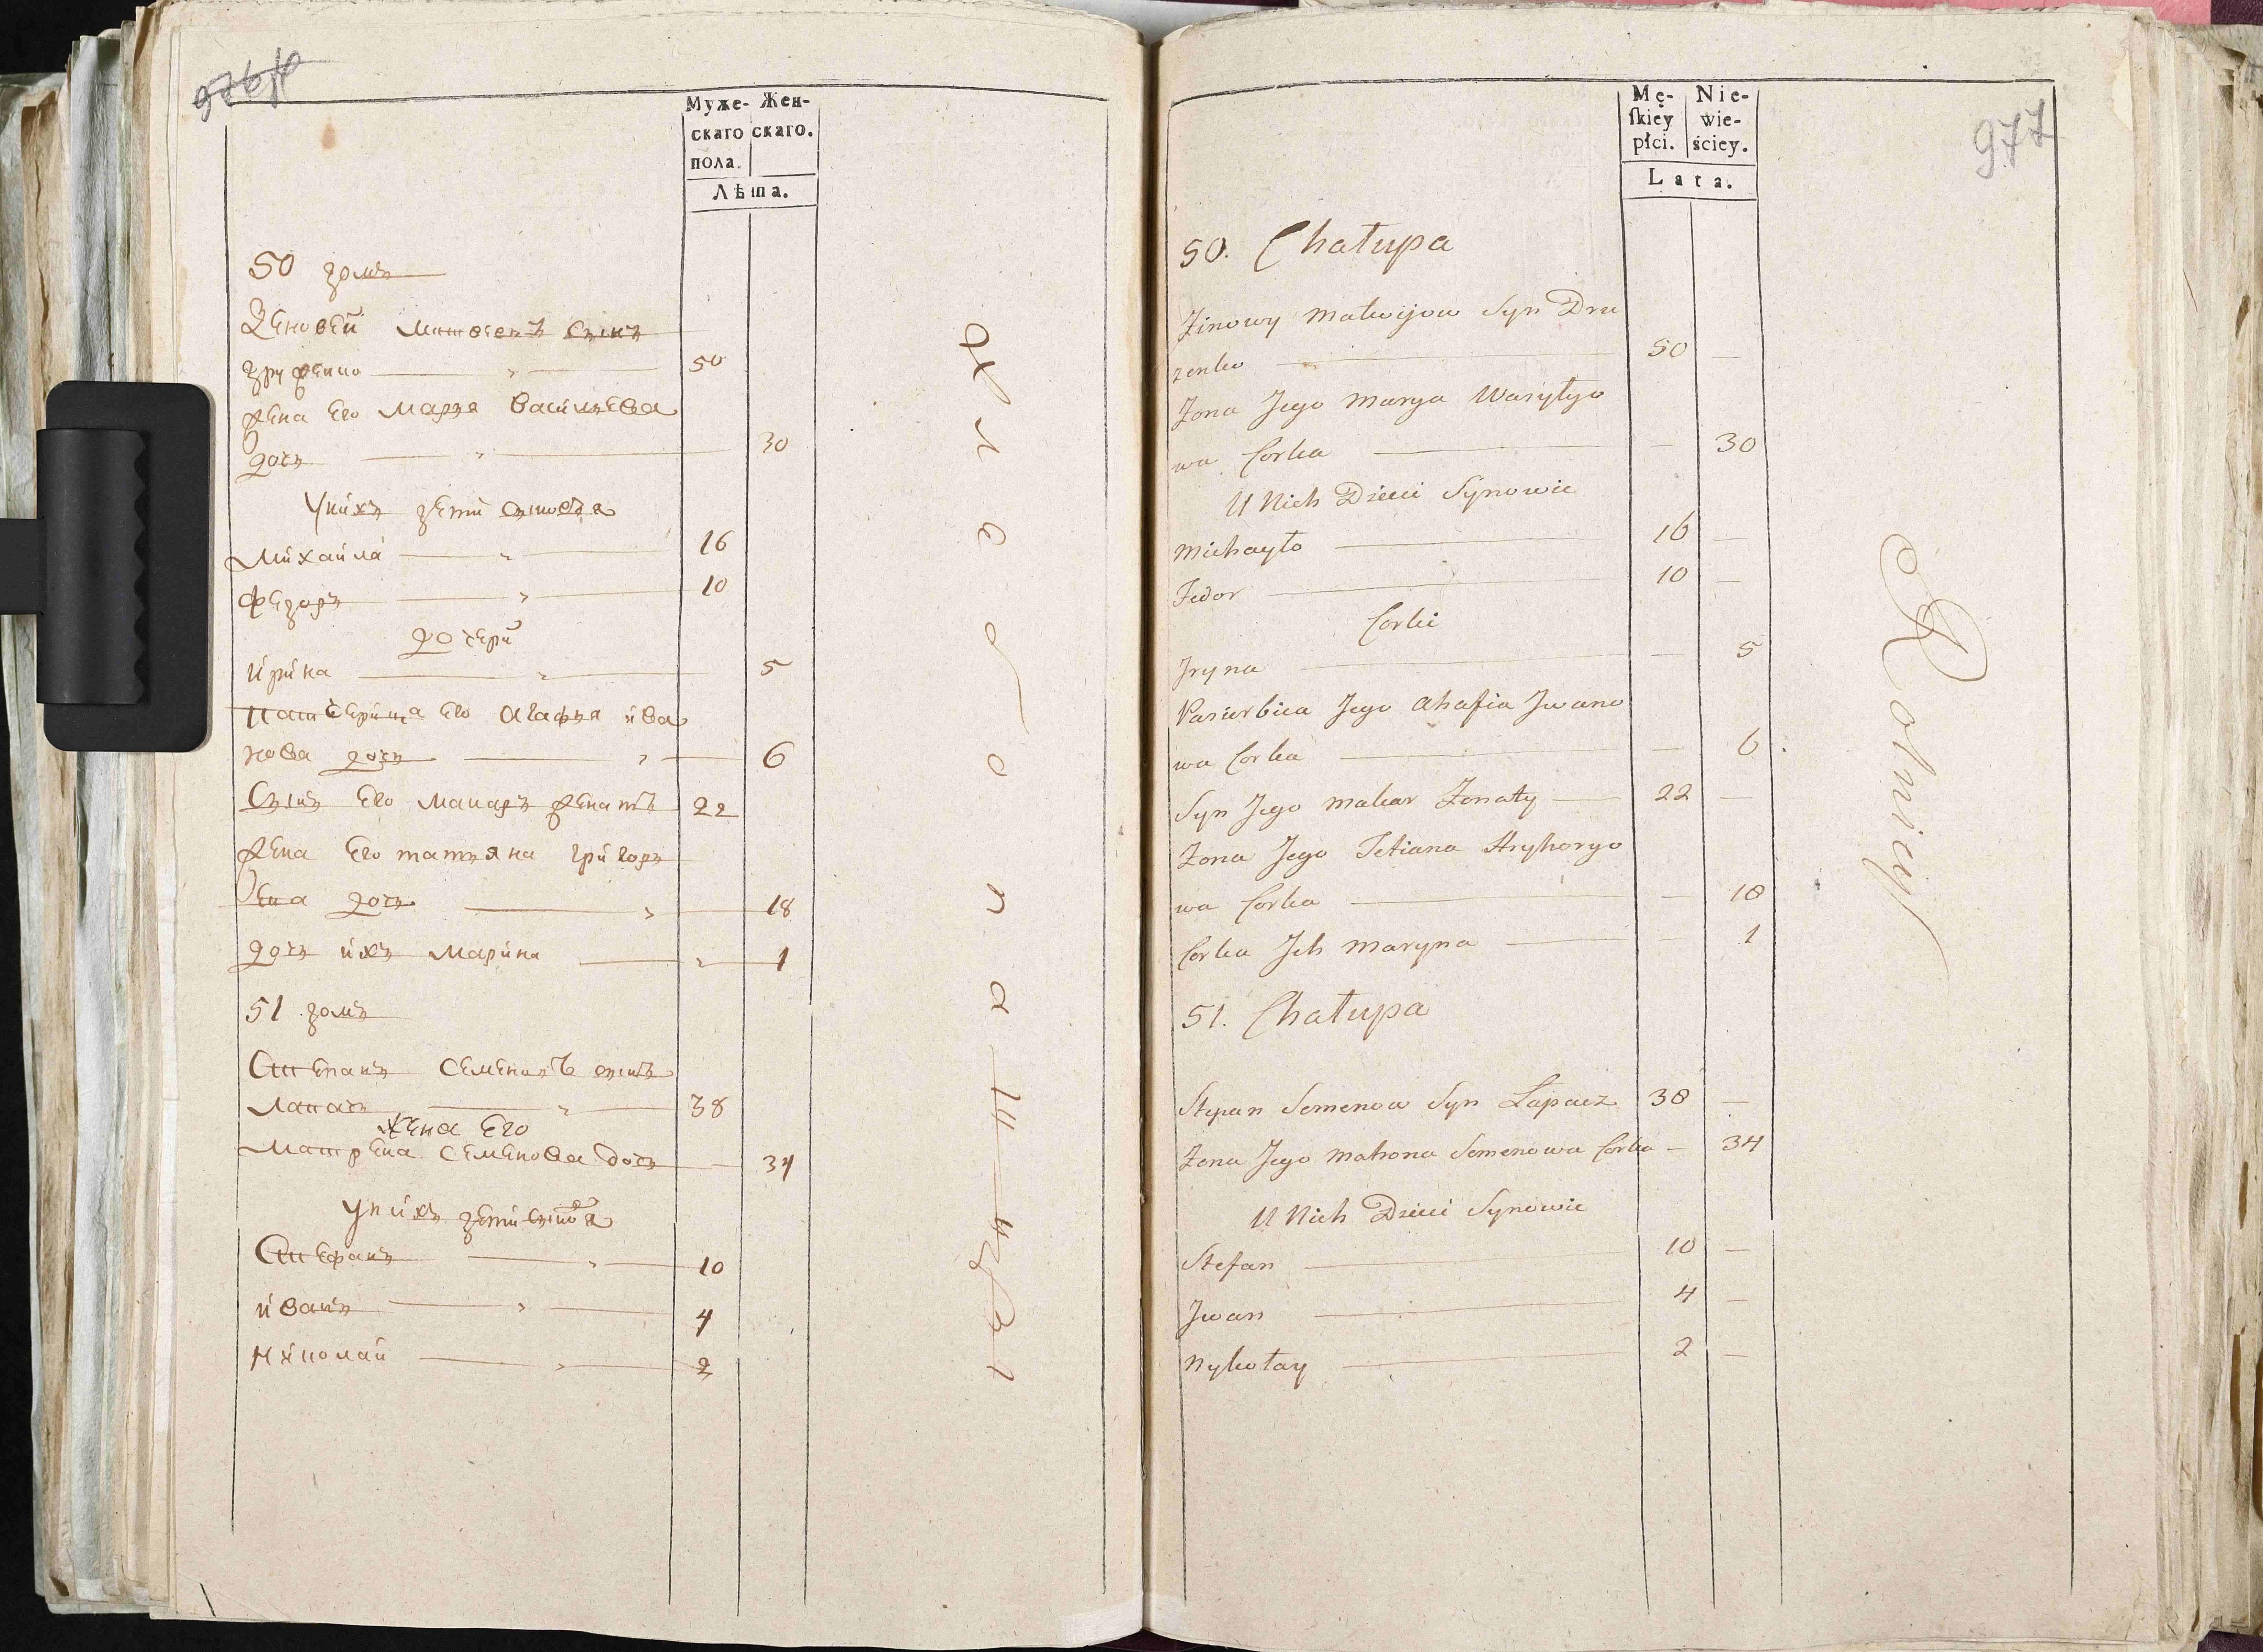 976об
Муже- Жен-
скаго скаго.
пола.
Лѣта.
50 домъ
Зеновей Матвеевъ Сынъ
Друзенко 50
жена Его Марья Васильева
дочь 30
У нихъ дети сыновья
Михайла 16
Федоръ 10
дочери
Ирина 5
падчерица Его Агафья Ива
нова дочь 6
Сынъ Его Макаръ женатъ 22
жена Его Татьяна Григорь
ева дочь 18
дочь ихъ Марина 1
51 домъ
Степанъ Семеновъ сынъ
Лапачь 38
жена Его
Матрена Семенова дочь — 34
У нихъ дети сыновья
Стефанъ 10
Иванъ 4
Николай 2
977
Mę- Nie-
skiey wie-
płci. ściey.
Lata.
50. Chałupa
Zinowy Matwijow Syn Dru
zenko 50 —
Zona Jego Marya Wasyłyo
wa Corka — 30
U Nich Dzieci Synowie
Michayło 16 —
Fedor 10 —
Corki
Jryna — 5
Pasierbica Jego Ahafia Jwano
wa Corka — 6
Syn Jego Makar Zonaty 22 —
Zona Jego Tetiana Hryhoryo
wa Corka — 18
Corka Jch Maryna — 1
51. Chałupa
Stepan Semenow Syn Łapacz 38 —
Zona Jego Matrona Semenowa Corka — 34
U Nich Dzieci Synowie
Stefan 10 —
Jwan 4 —
Nykołay 2 —
Rolnicy